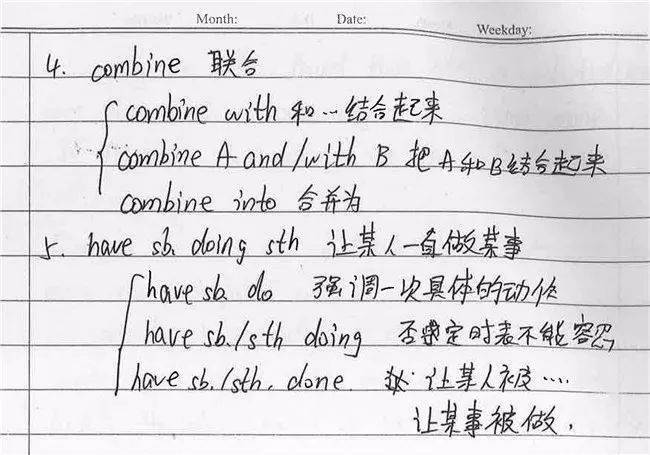 Month: Date: Weekday:
4. combine 联合
combine with 和…结合起来
combine A and/with B 把A和B结合起来
combine into 合并为
5. have sb. doing sth 让某人一直做某事
have sb. do 强调一次具体的动作
have sb./sth doing 否定时表不能容忍
have sb./sth. done 让某人被….
让某事被做.